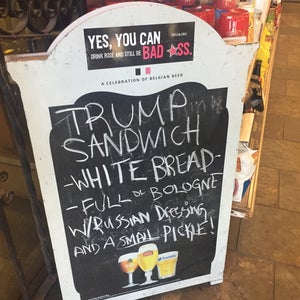 YES, YOU CAN
DRINK ROSÉ AND STILL BE BAD ★SS.
A CELEBRATION OF BELGIAN BEER
TRUMP
SANDWICH
-WHITE BREAD-
-FULL OF BOLOGNE
W/RUSSIAN DRESSING
AND A SMALL PICKLE!